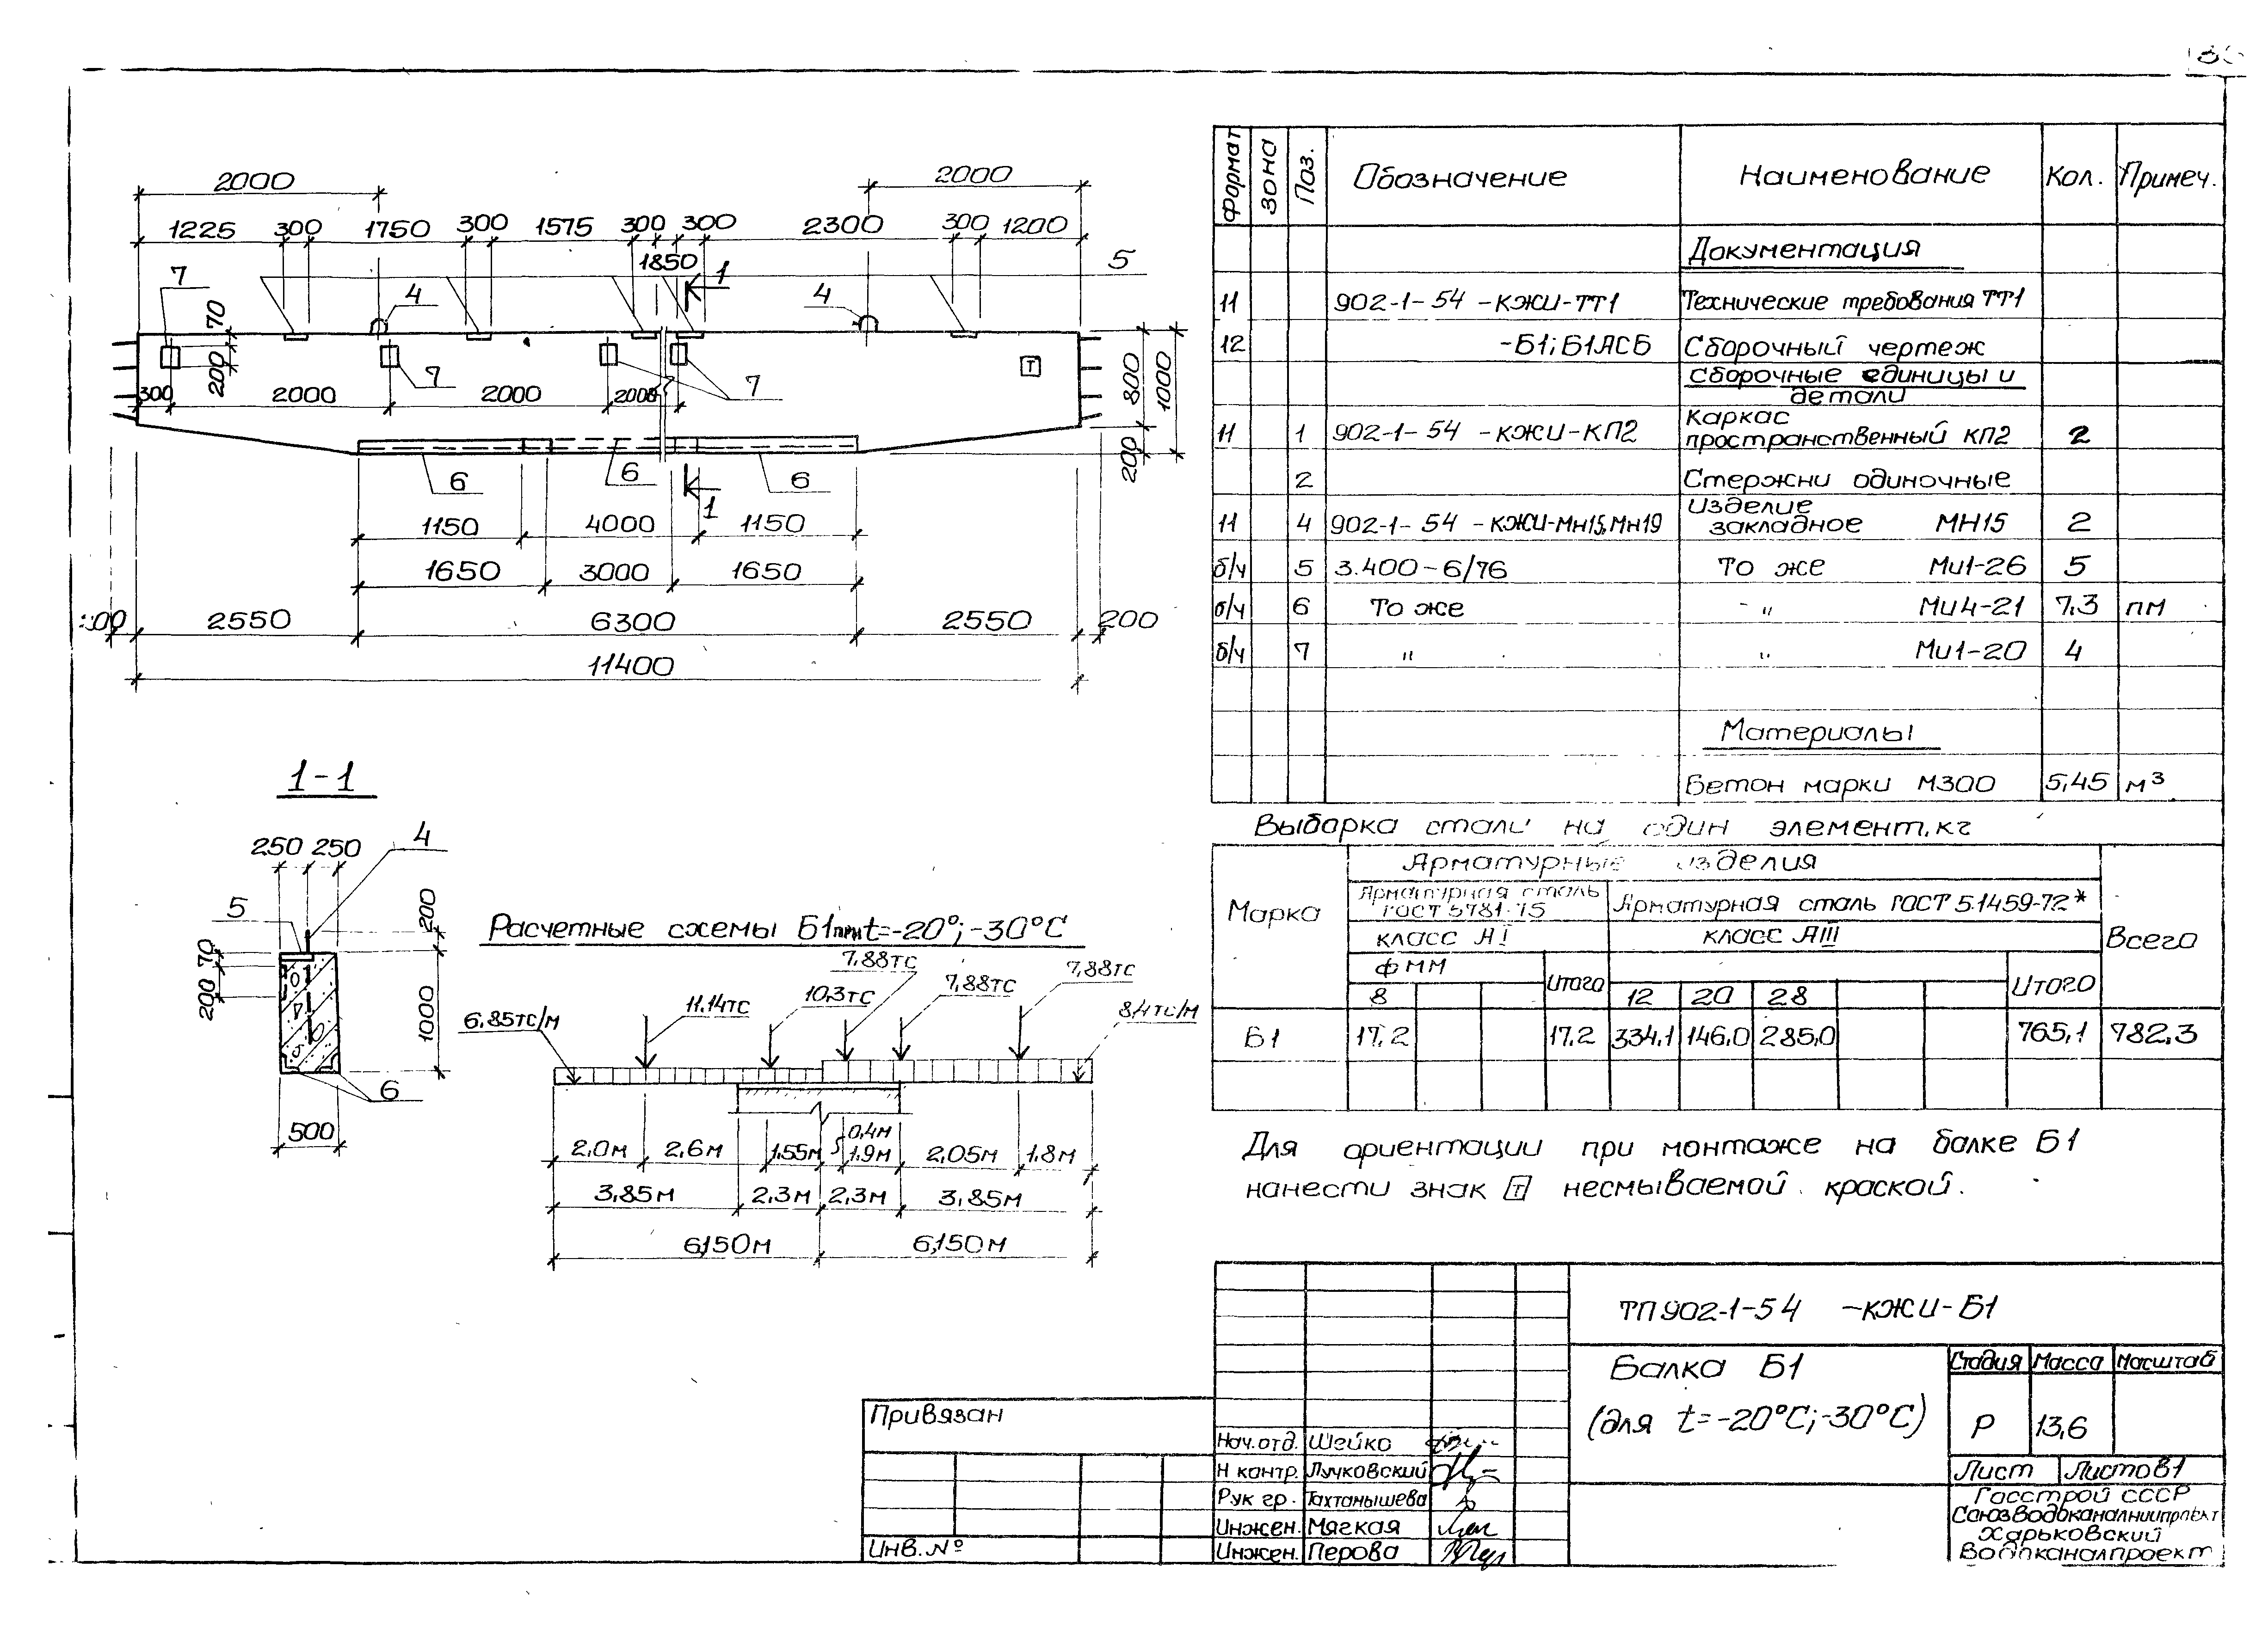 2000
2000
1225 300 1750 300 1575 300 300 2300 300 1200
1850
1
5
7
4
4
70
200
7
7
Т
800
1000
200
300 2000 2000 2000
6 6 6
1
1150 4000 1150
1650 3000 1650
2550 6300 2550 200
11400
1-1
250 250
4
5
200
70
200
1000
6
500
Расчетные схемы Б1при t=-20°; -30°С
7,88тс
7,88тс
7,88тс
11,14тс
10,3тс
6,85тс/м
8,4тс/м
0,4м
2,0м 2,6м 1,55м 1,9м 2,05м 1,8м
3,85м 2,3м 2,3м 3,85м
6,150м 6,150м
Формат Зона Поз. Обозначение Наименование Кол. Примеч.
Документация
11 902-1-54 -КЖИ-ТТ1 Технические требования ТТ1
12 -Б1; Б1АСБ Сборочный чертеж
Сборочные единицы и
детали
Каркас
11 1 902-1-54 -КЖИ-КП2 пространственный КП2 2
2 Стержни одиночные
Изделие
11 4 902-1-54 -КЖИ-Мн15,Мн19 закладное МН15 2
б/ч 5 3.400-6/76 То же Ми1-26 5
б/ч 6 То же -" Ми4-21 7,3 пм
б/ч 7 " " Ми1-20 4
Материалы
Бетон марки М300 5,45 м³
Выборка стали на один элемент, кг
Марка Арматурные изделия Всего
Арматурная сталь
ГОСТ 5781-75
Арматурная сталь ГОСТ 5.1459-72*
класс АI класс АIII
Ф мм Итого Итого
8 12 20 28
Б1 17,2 17,2 334,1 146,0 285,0 765,1 782,3
Для ориентации при монтаже на балке Б1
нанести знак Т несмываемой краской.
ТП902-1-54 -КЖИ-Б1
Балка Б1
(для t=-20°С; -30°С)
Стадия Масса Масштаб
Р 13,6
Лист Листов1
Госстрой СССР
Союзводоканалниипроект
Харьковский
Водоканалпроект
Привязан
Инв.№
Нач.отд. Шейко
Н контр. Лучковский
Рук гр. Тахтанышева
Инжен. Мягкая
Инжен. Перова